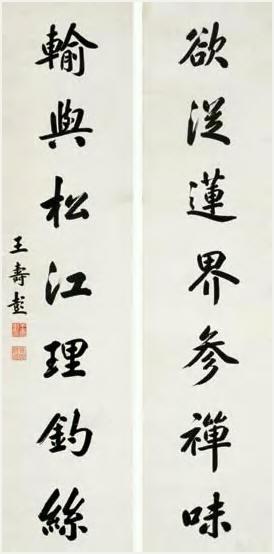 欲從蓮界參禪味
輸與松江理釣絲
王壽彭